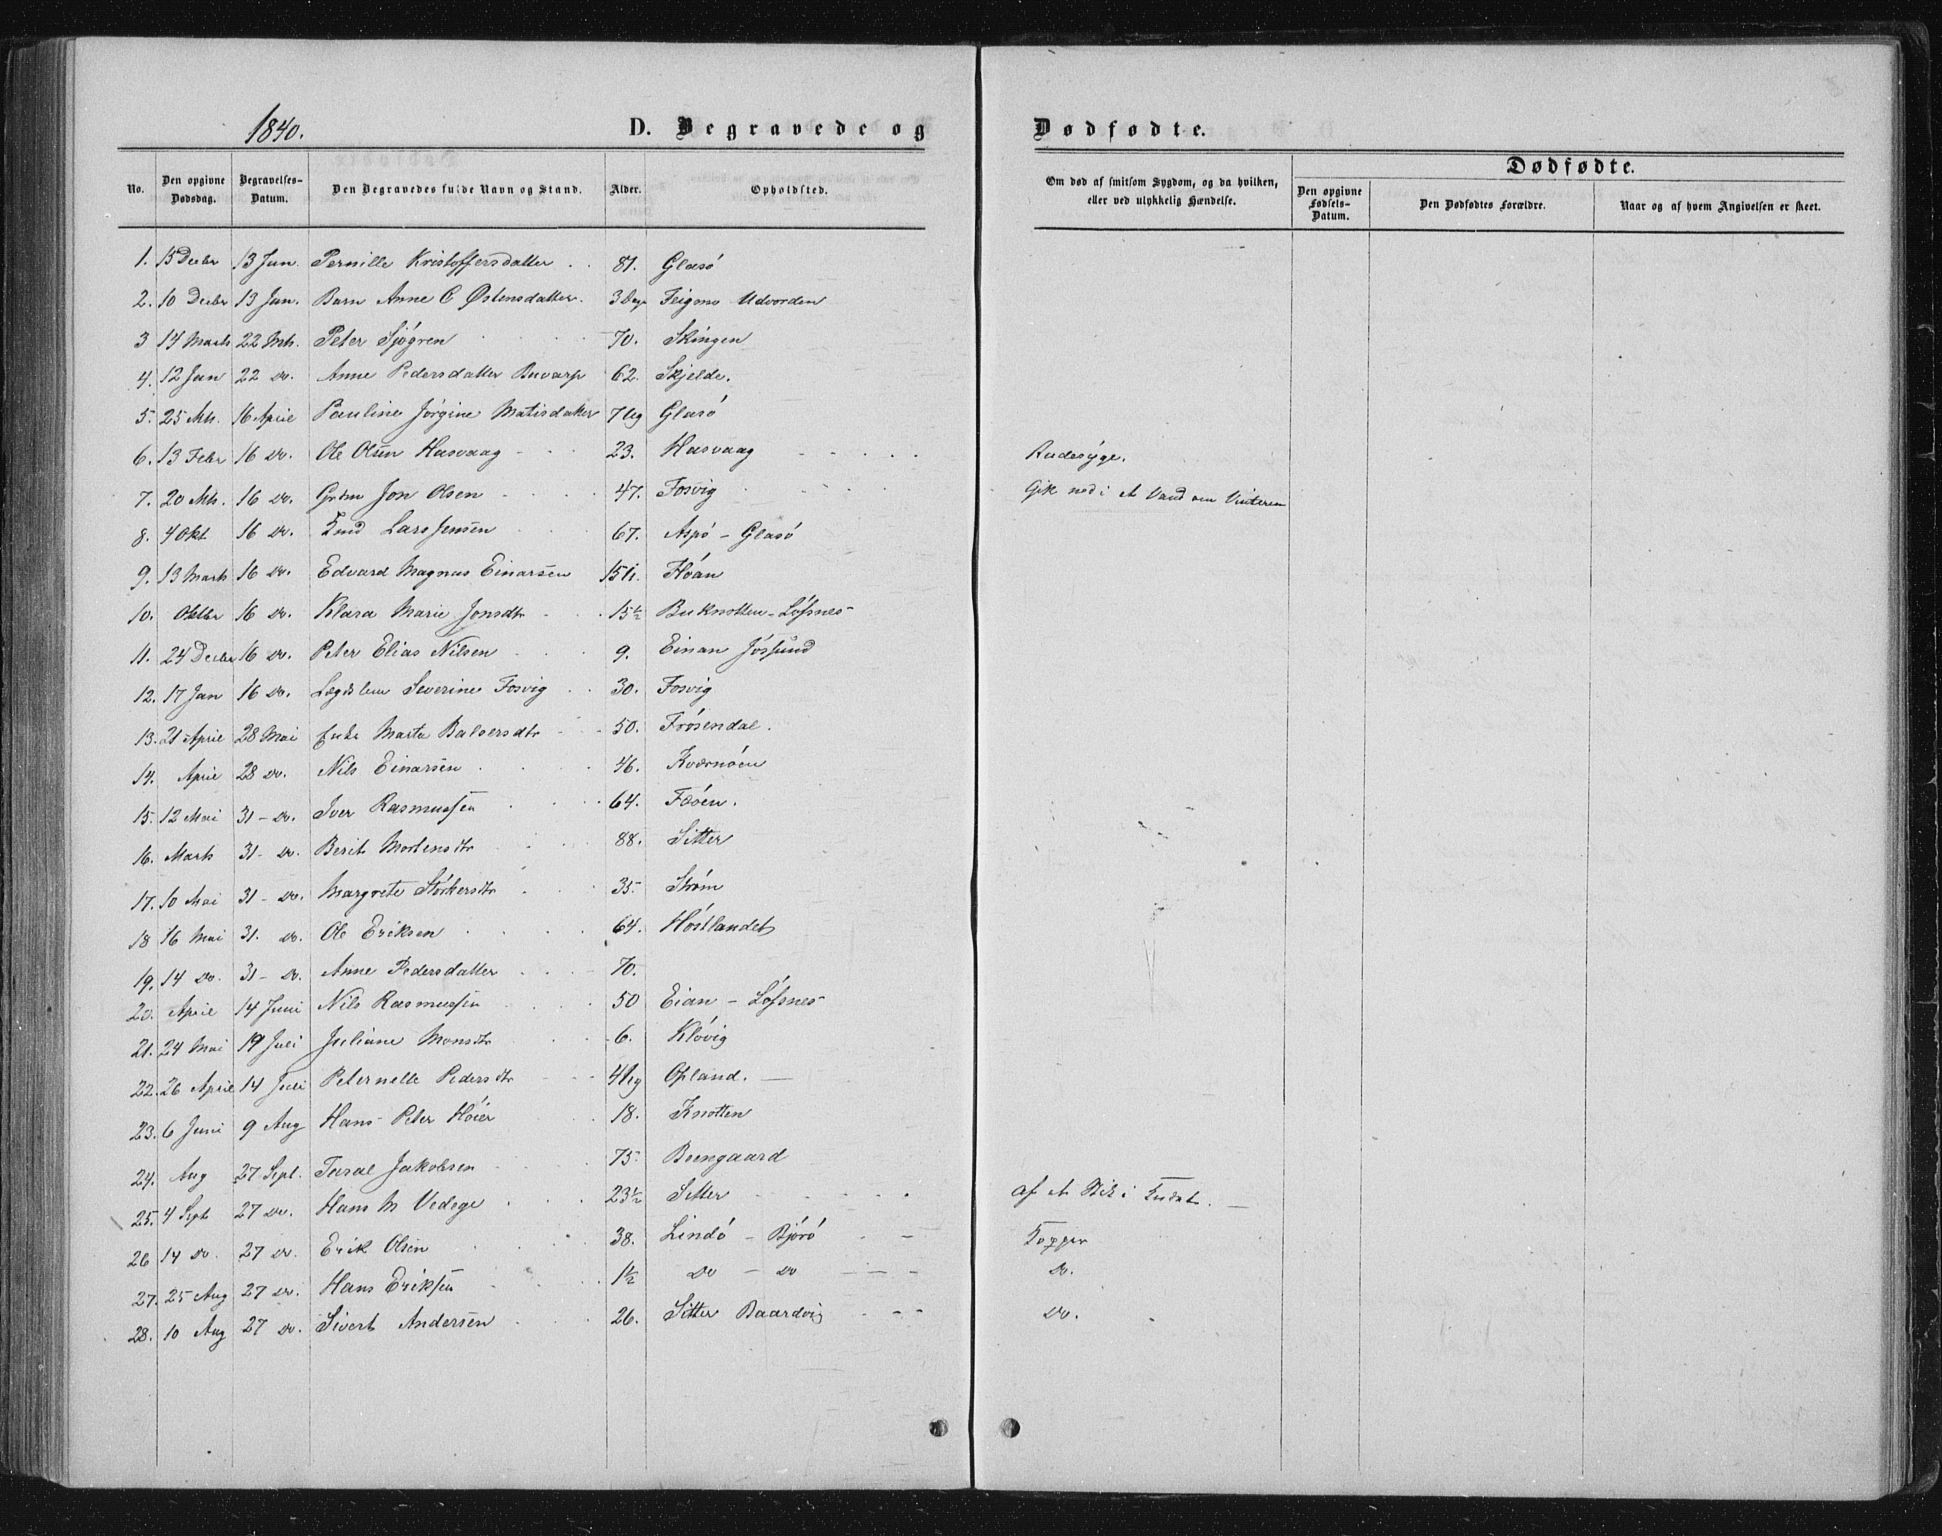 1840.
D. Begravede og Dødfødte.
No. Den opgivne Dødsdag. Begravelses-Datum. Den Begravedes fulde Navn og Stand. Alder. Opholdsted. Om død af smitsom Sygdom, og da hvilken, eller ved ulykkelig Hændelse. Dødfødte.
Den opgivne Fødsels-Datum. Den Dødfødtes Forældre. Naar og af hvem Angivelsen er skeet.
1. 15 Decbr 13 Jan. Pernille Kristoffersdatter 81. Glasö
2. 10 Decbr 13 Jan. Barn Anne C Østensdatter. 3 Dage Udvorden
3 14 Marts 22 Mts. Peter Sjögren 70. Skingen
4. 12 Jan 22 do. Anne Pedersdatter Buvarp 62. Skjelde.
5. 25 Mts. 16 April Pauline Jörgine Matisdatter 7 Ug Glasö
6. 13 Febr 16 do. Ole Olsen Hasvaag 23. Hasvaag Radesyge.
7. 20 Mts. 16 do. Jon Olsen 47. Fosvig Gik ned i et Vand om Vinteren
8. 4 Okt 16 do. Lars Jensen 67. Aspö - Glasö
9. 13 Marts 16 do. Edvard Magnus Einarsen Höan
10. Oktbr 16 do. Klara Marie Jonsdtr 15½ Buknotten - Löfsnes
11. 24 Decbr 16 do. Peter Elias Nilsen 9. Einan Jössund
12. 17 Jan 16 do. Lægdslem Severine Fosvig 30. Fosvig
13. 21 April 28 Mai Enke Marta Balsersdtr 50. Frösendal.
14. April 28 do. Nils Einarsen 46. Kværnöen
15. 12 Mai 31 - do. Iver Rasmussen 64. Faöen.
16. Marts 31 - do. Berit Mortensdtr 88. Sitter
17. 10 Mai 31 - do. Margrete Störkersdtr 35 Ström
18 16 Mai 31. do. Ole Eriksen 64. Höstlandet
19. 14 do. 31 - do. Anne Pedersdatter 70.
20. April 14 Juni Nils Rasmussen 50 Eian - Löfsnes
21. 24 Mai 19 Juli Juliane Monsdtr 6. Klövig
22. 26 April 14 Juli Peternelle Pedersdtr 4 Ug Opland.
23. 6 Juni 9 Aug Hans Peter Höier 18. Knotten
24. Aug 27 Sept. Jakobsen 75 Boengaard
25. 4 Sept 27 do. Hans M Vedege 23½ Sitter af et Stik i
26 14 do. 27 do. Erik Olsen 38. Lindö - Björö Kopper
27. 25 Aug 27 do. Hans Eriksen 1½ do - do do.
28. 10 Aug 27 do. Sivert Andersen 26. Sitter Baardvig do.